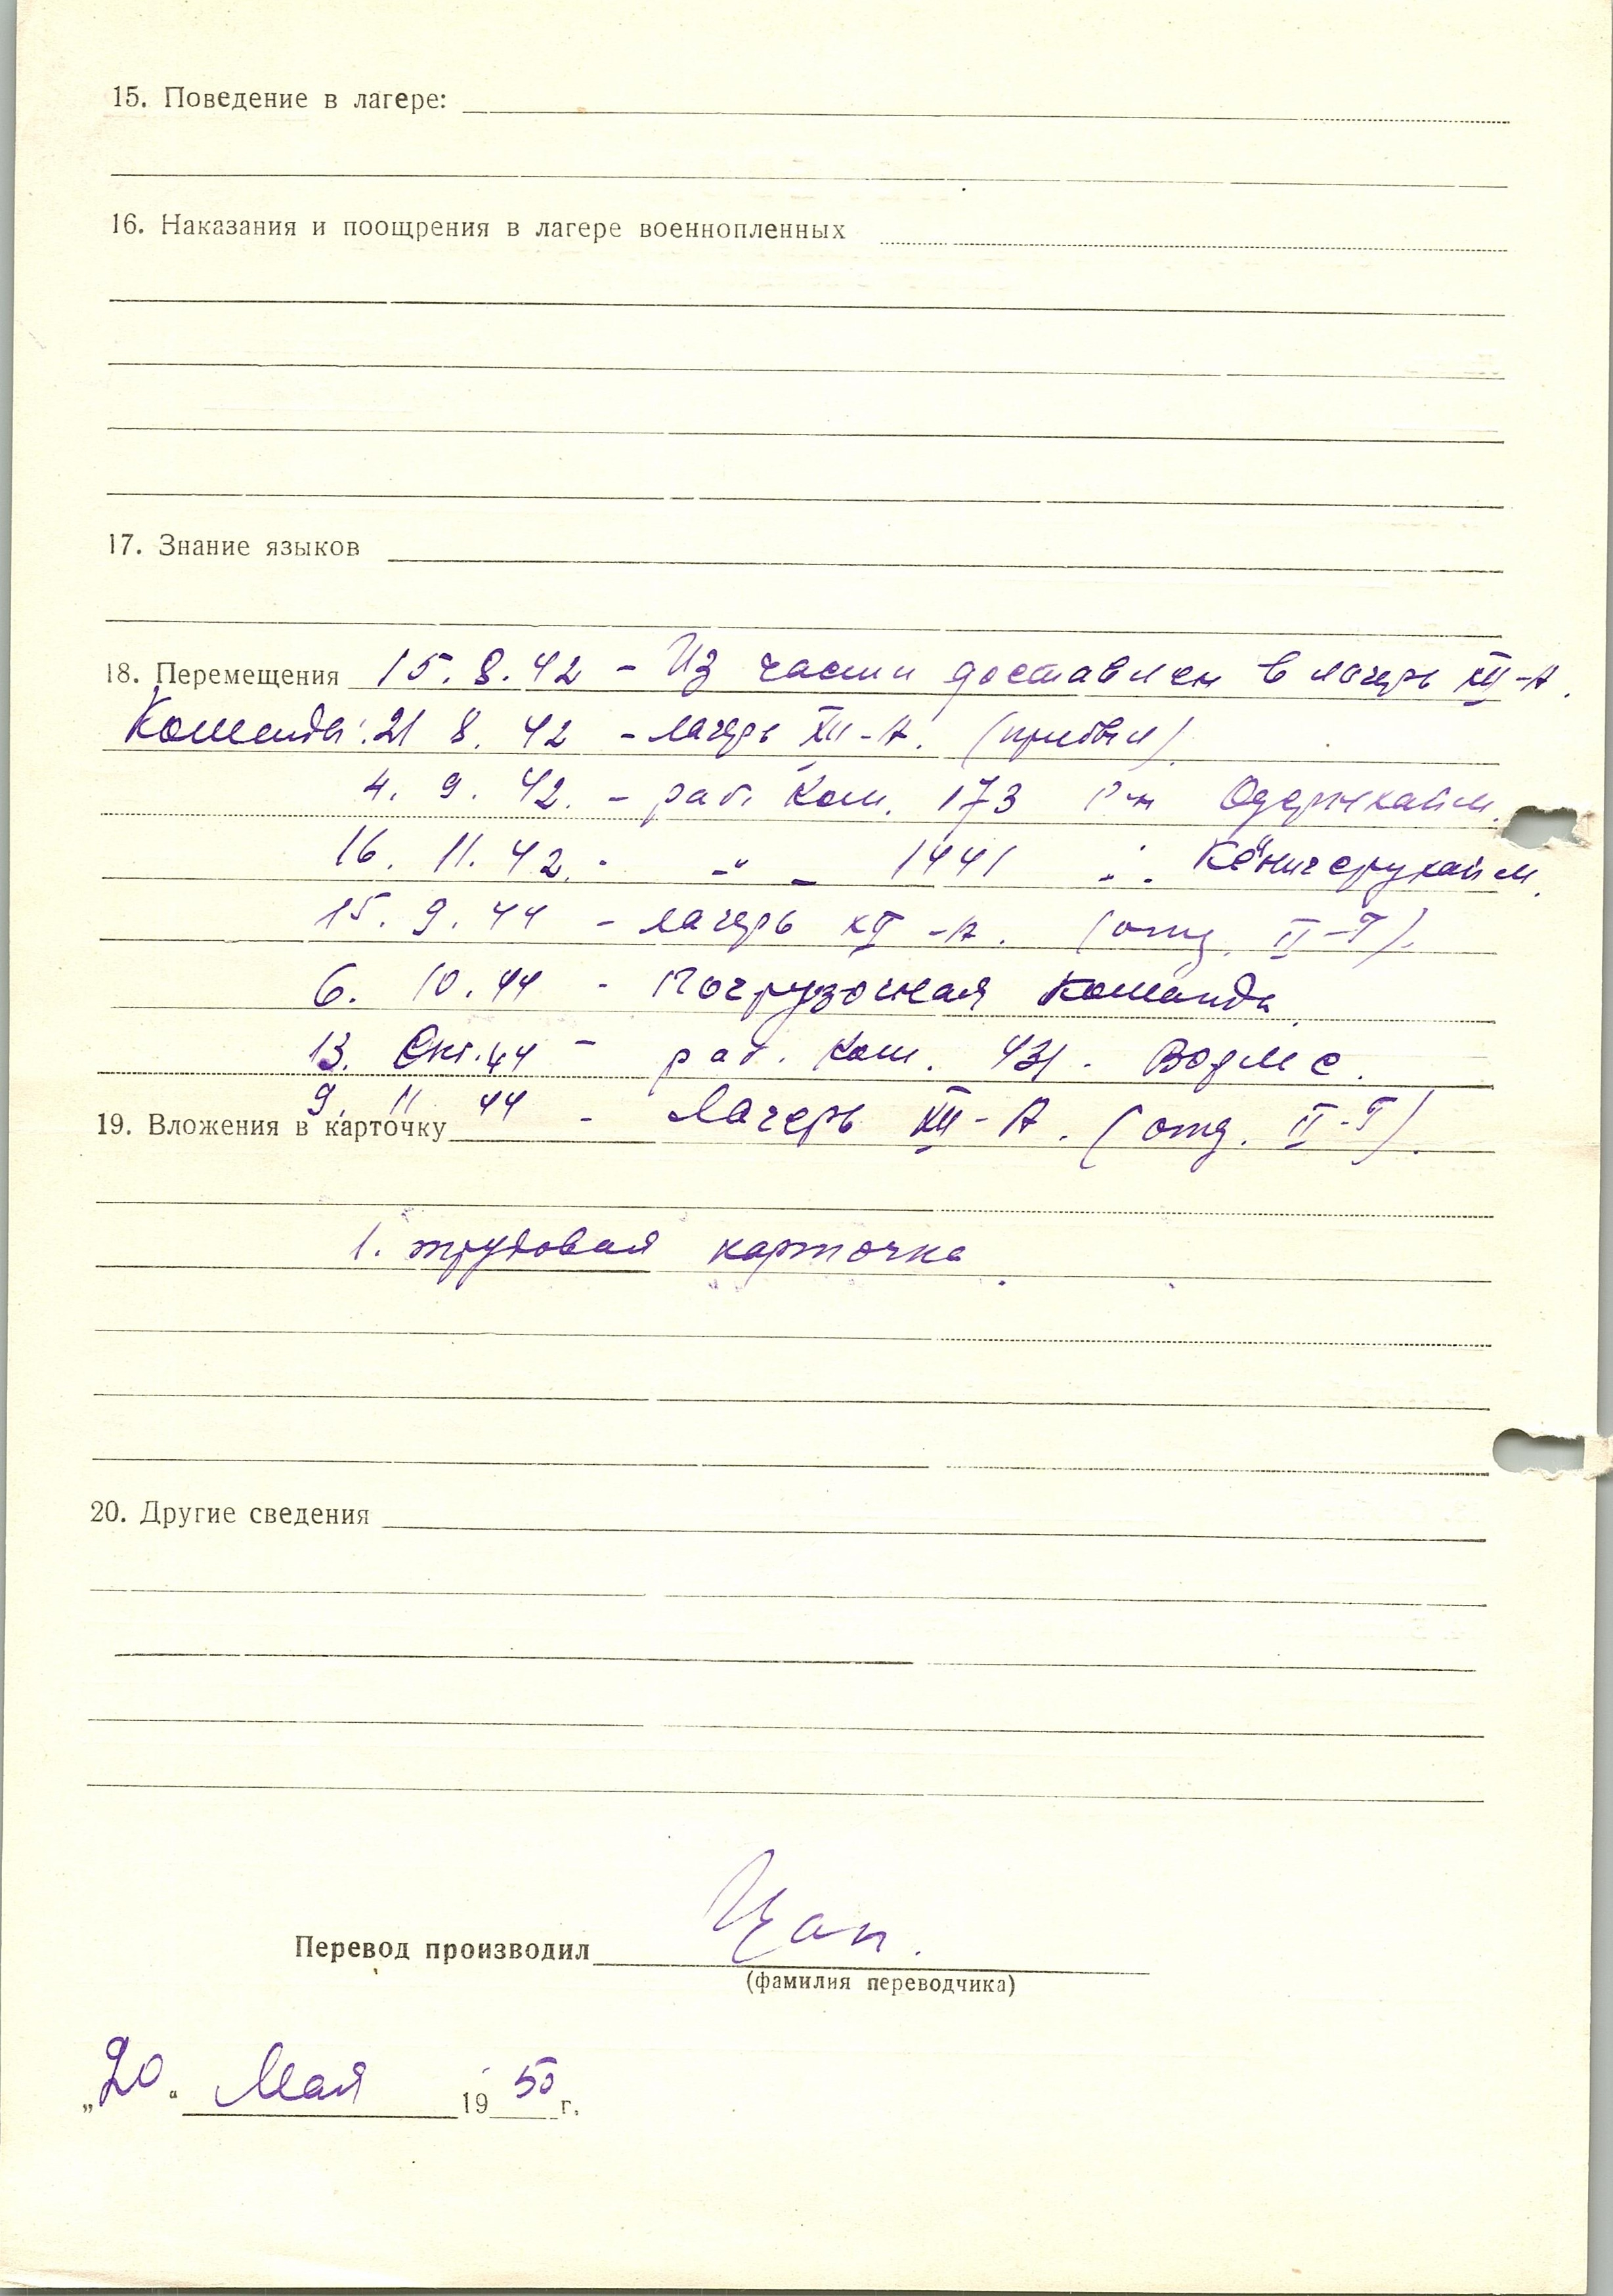 15. Поведение в лагере:
16. Наказания и поощрения в лагере военнопленных
17. Знание языков
18. Перемещения 15. 8. 42 - Из части доставлен в лагерь XII-А.
Команды: 21 8. 42 - лагерь XII-А. (прибыл).
4. 9. 42. - раб. Ком. 173 Одернхайм.
16. 11. 42. - -"- 1441 Кёнигернхайм.
15. 9. 44 - лагерь -А. (отд. II-Т).
6. 10. 44 - Погрузочная команда.
13. Окт. 44 - раб. Ком. 431.
9. 11 44 - Лагерь XII-А. (отд. II-Т).
19. Вложения в карточку
1. трудовая карточка.
20. Другие сведения
Перевод производил Цап.
(фамилия переводчика)
„20“ Мая 1950 г.